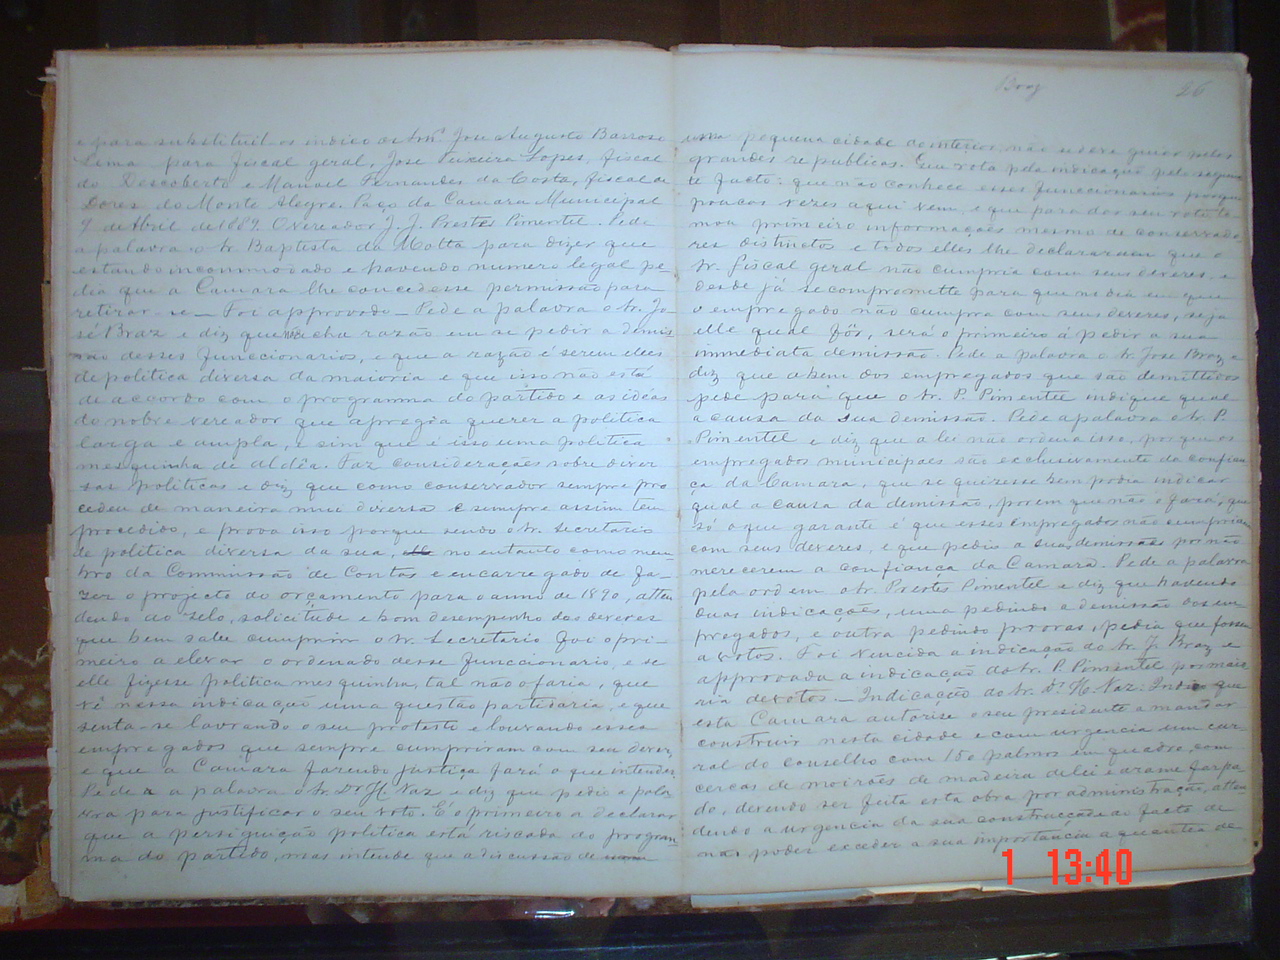 e para substituil-os indico os Snrs. Jose Augusto Barroso
Lima para fiscal geral, Jose Teixeira Lopes, fiscal
do Descoberto e Manoel Fernandes da Costa, fiscal de
Dores do Monte Alegre. Paço da Camara Municipal
9 de Abril de 1889. O vereador J. J. Prestes Pimentel. Pede
a palavra o Sr. Baptista da Motta para dizer que
estando incommodado e havendo numero legal pe-
dia que a Camara lhe concedesse permissão para
retirar-se — Foi approvado — Pede a palavra o Sr. Jo-
sé Braz e diz que não acha razão em se pedir a demis
são desses funccionarios, e que a razão é serem elles
de politica diversa da maioria e que isso não está
de accordo com o programma do partido e as idéas
do nobre vereador que apregôa querer a politica
larga e ampla, e sim que é isso uma politica
mesquinha de aldêa. Faz considerações sobre diver
sas politicas e diz que como conservador sempre pro
cedeu de maneira mui diversa e sempre assim tem
procedido, e prova isso porque sendo o Sr. Secretario
de politica diversa da sua, no entanto como mem
bro da Commissão de Contas e encarregado de fa-
zer o projecto do orçamento para o anno de 1890, atten
dendo ao zelo, solicitude e bom desempenho dos deveres
que bem sabe cumprir o Sr. Secretario foi o pri-
meiro a elevar o ordenado desse funccionario, e se
elle fizesse politica mesquinha, tal não o faria, que
vê nessa indicação uma questão partidaria, e que
senta-se lavrando o seu protesto e louvando esses
empregados que sempre cumpriram com seu dever,
e que a Camara fazendo justiça fará o que intender.
Pede a palavra o Sr. Dr. H. Vaz e diz que pedio a pala
vra para justificar o seu voto. É o primeiro a declarar
que a persiguição politica está riscada do program
ma do partido, mas intende que a discussão de
Braz 26
uma pequena cidade do interior, não se deve guiar pelas
grandes republicas. Eu vota pela indicação pelo seguin
te facto: que não conhece esses funccionarios porque
poucas vezes aqui vem, e que para dar seu voto to-
mou primeiro informações mesmo de conservado-
res distinctos e todos elles lhe declararam que o
Sr. fiscal geral não cumpria com seus deveres, e
desde já se compromette para que no dia em que
o empregado não cumpra com seus deveres, seja
elle qual fôr, será o primeiro á pedir a sua
immediata demissão. Pede a palavra o Sr. Jose Braz e
diz que a bem dos empregados que são demittidos
pede para que o Sr. P. Pimentel indique qual
a causa da sua demissão. Pede a palavra o Sr. P.
Pimentel e diz que a lei não ordena isso, porque os
empregados municipaes são exclusivamente de confian
ça da Camara, que se quizesse bem podia indicar
qual a causa da demissão, porem que não o fará, que
só o que garante é que esses empregados não cumpriam
com seus deveres, e que pedio a suas demissões por não
merecerem a confiança da Camara. Pede a palavra
pela ordem o Sr. Prestes Pimentel e diz que havendo
duas indicações, uma pedindo a demissão dos em
pregados, e outra pedindo provas, pedia que fossem
a votos. Foi vencida a indicação do Sr. J. Braz e
approvada a indicação do Sr. P. Pimentel por maio
ria de votos. — Indicação do Sr. Dr. H. Vaz: Indico que
esta Camara autorise o seu presidente a mandar
construir nesta cidade e com urgencia um cur
ral do conselho com 150 palmos em quadro, com
cercas de moirões de madeira de lei e arame farpa
do, devendo ser feita esta obra por administração, atten
dendo a urgencia da sua construcção ao facto de
não poder exceder a sua importancia a quantia de
1 13:40